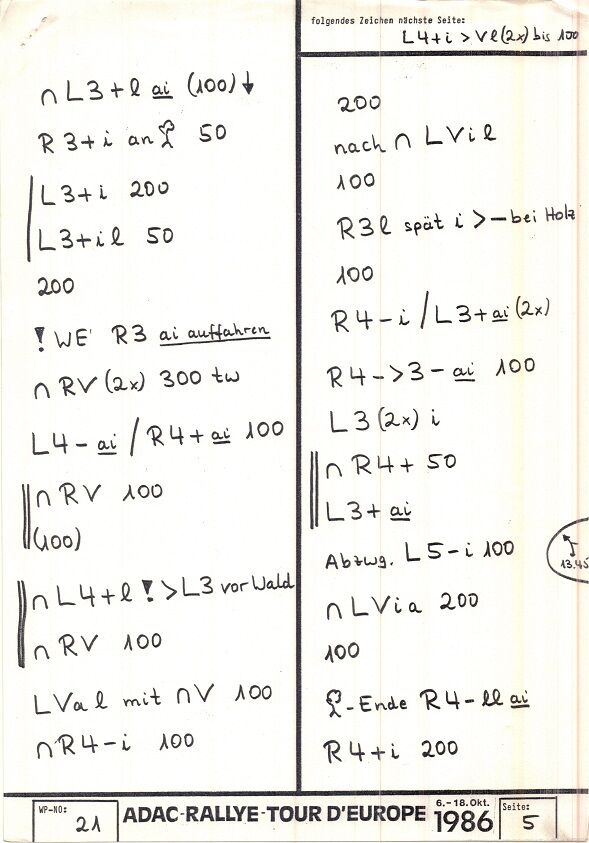 ∩ L3+l ai (100) ↓
R 3+i an 50
L3+i 200
L3+il 50
200
! WE' R3 ai auffahren
∩ RV (2x) 300 tw
L4- ai / R4+ ai 100
∩ RV 100
(100)
∩ L4+l ! > L3 vor Wald
∩ RV 100
LVal mit ∩V 100
∩ R4-i 100
folgendes Zeichen nächste Seite:
L4+i > Vl(2x) bis 100
200
nach ∩ LVil
100
R3l spät i >– bei Holz
100
R4-i / L3+ai (2x)
R4->3- ai 100
L3 (2x) i
∩ R4+ 50
L3+ ai
Abzwg. L5-i 100
13.45
∩ LVia 200
100
-Ende R4-ll ai
R4+i 200
WP-NO: 21
ADAC-RALLYE-TOUR D'EUROPE
6.-18.Okt.
1986
Seite: 5